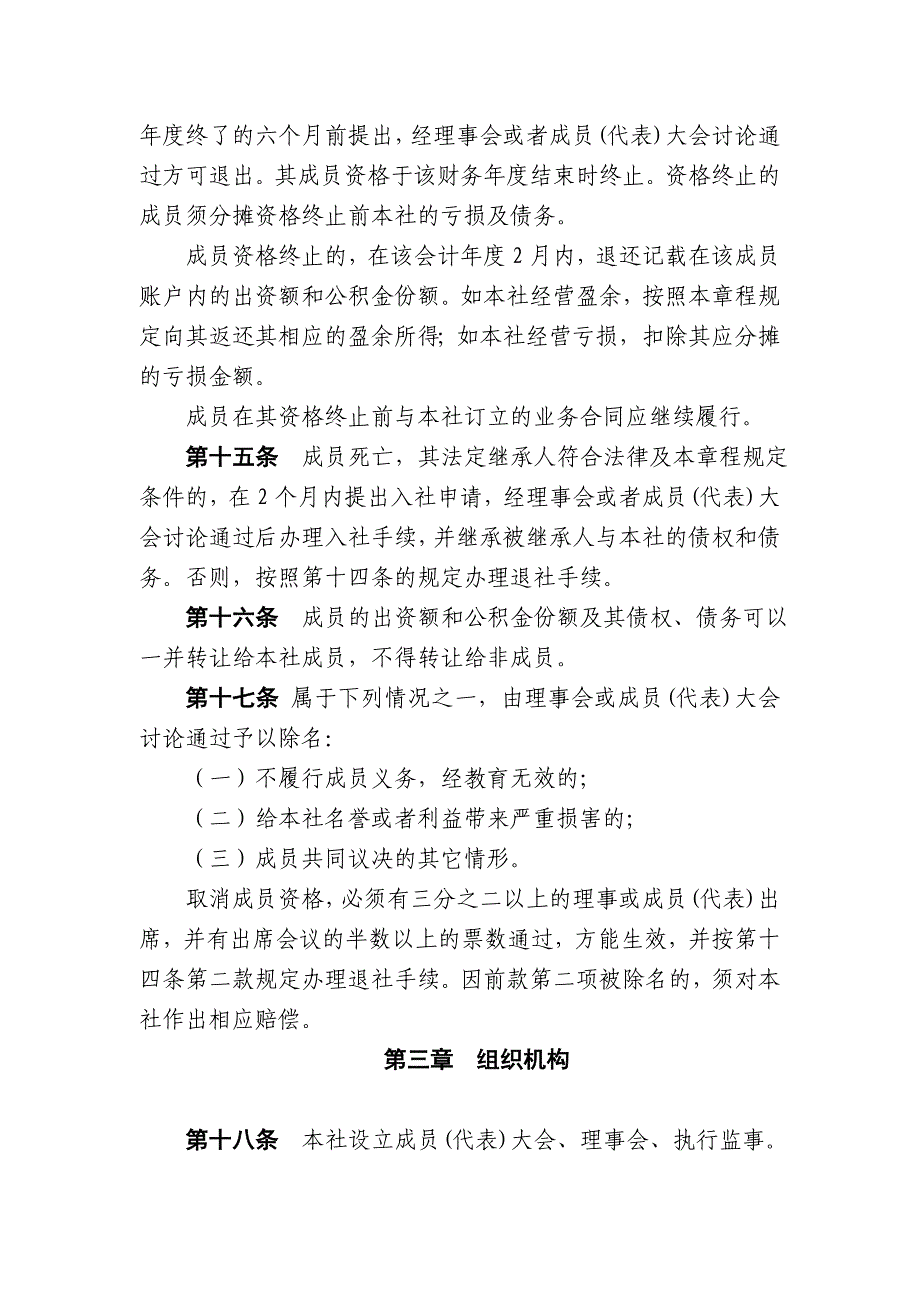 年度终了的六个月前提出，经理事会或者成员(代表)大会讨论通
过方可退出。其成员资格于该财务年度结束时终止。资格终止的
成员须分摊资格终止前本社的亏损及债务。
成员资格终止的，在该会计年度 2 月内，退还记载在该成员
账户内的出资额和公积金份额。如本社经营盈余，按照本章程规
定向其返还其相应的盈余所得；如本社经营亏损，扣除其应分摊
的亏损金额。
成员在其资格终止前与本社订立的业务合同应继续履行。
第十五条　成员死亡，其法定继承人符合法律及本章程规定
条件的，在 2 个月内提出入社申请，经理事会或者成员(代表)大
会讨论通过后办理入社手续，并继承被继承人与本社的债权和债
务。否则，按照第十四条的规定办理退社手续。
第十六条　成员的出资额和公积金份额及其债权、债务可以
一并转让给本社成员，不得转让给非成员。
第十七条 属于下列情况之一，由理事会或成员(代表)大会
讨论通过予以除名：
（一）不履行成员义务，经教育无效的；
（二）给本社名誉或者利益带来严重损害的；
（三）成员共同议决的其它情形。
取消成员资格，必须有三分之二以上的理事或成员(代表)出
席，并有出席会议的半数以上的票数通过，方能生效，并按第十
四条第二款规定办理退社手续。因前款第二项被除名的，须对本
社作出相应赔偿。
第三章　组织机构
第十八条　本社设立成员(代表)大会、理事会、执行监事。